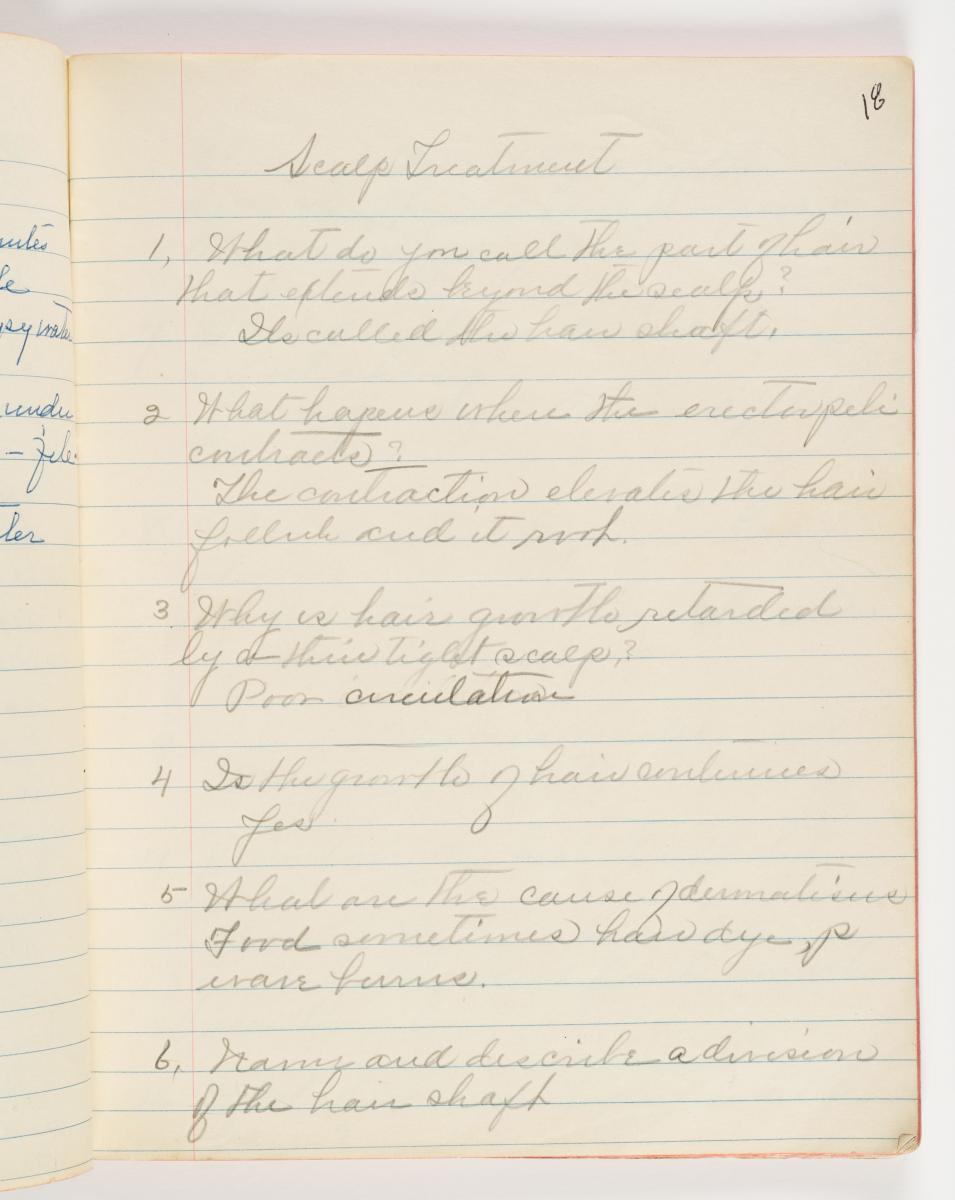 18
Scalp Treatment
1, What do you call the part of hair
that extends beyond the scalp?
Its called the hair shaft.
2 What hapens when the erector peli
contracts?
The contraction elevates the hair
and it
3 Why is hair growth retarded
by a thin tight scalp?
Poor circulation
4 Is the growth of hair continues
Yes
5 What are the cause of
Food sometimes hair dye, p
wave burns.
6, Name and describe a division
of the hair shaft